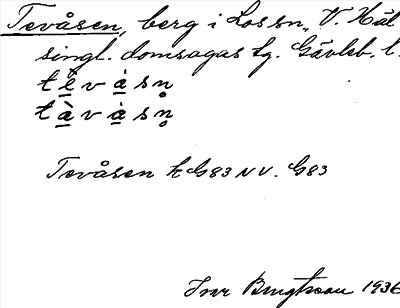 Tevåsen, berg i Los sn, V. Häl
singl. domsagas tg. Gävleb. l.
tèvàsn̥
tàvàsn̥
Tevåsen k G83 NV. G83
Ivar Bengtsson 1936